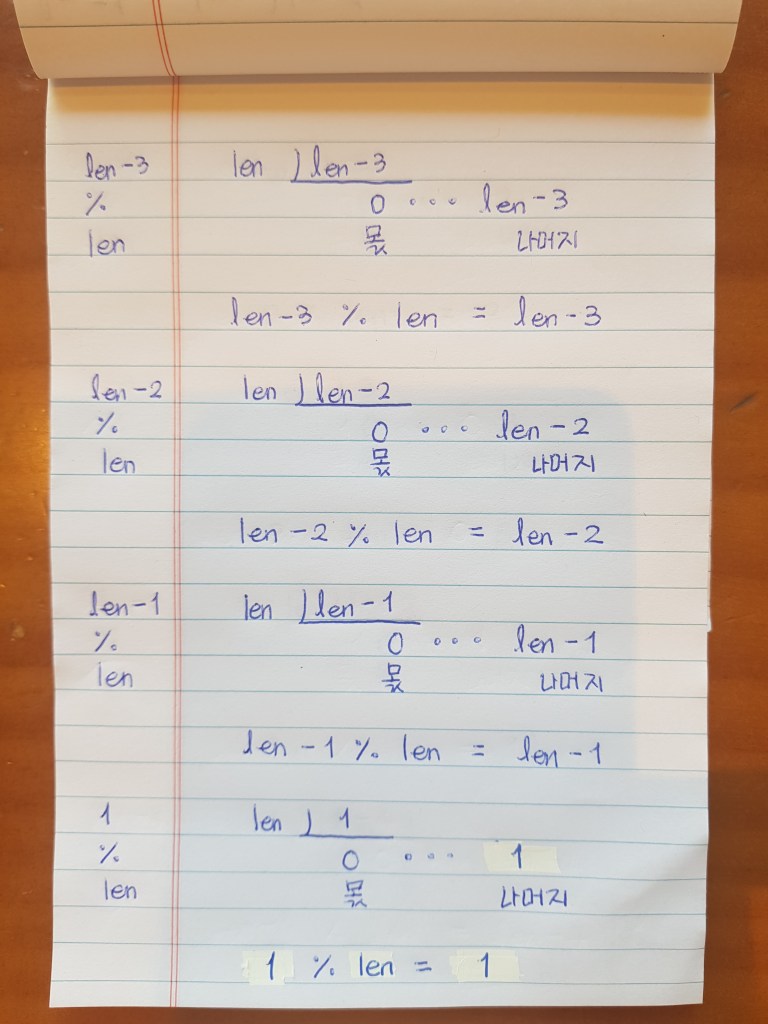 len-3 len ) len-3
% 0 ∘∘∘ len-3
len 몫 나머지
len-3 % len = len-3
len-2 len ) len-2
% 0 ∘∘∘ len-2
len 몫 나머지
len-2 % len = len-2
len-1 len ) len-1
% 0 ∘∘∘ len-1
len 몫 나머지
len-1 % len = len-1
1 len ) 1
% 0 ∘∘∘ 1
len 몫 나머지
1 % len = 1